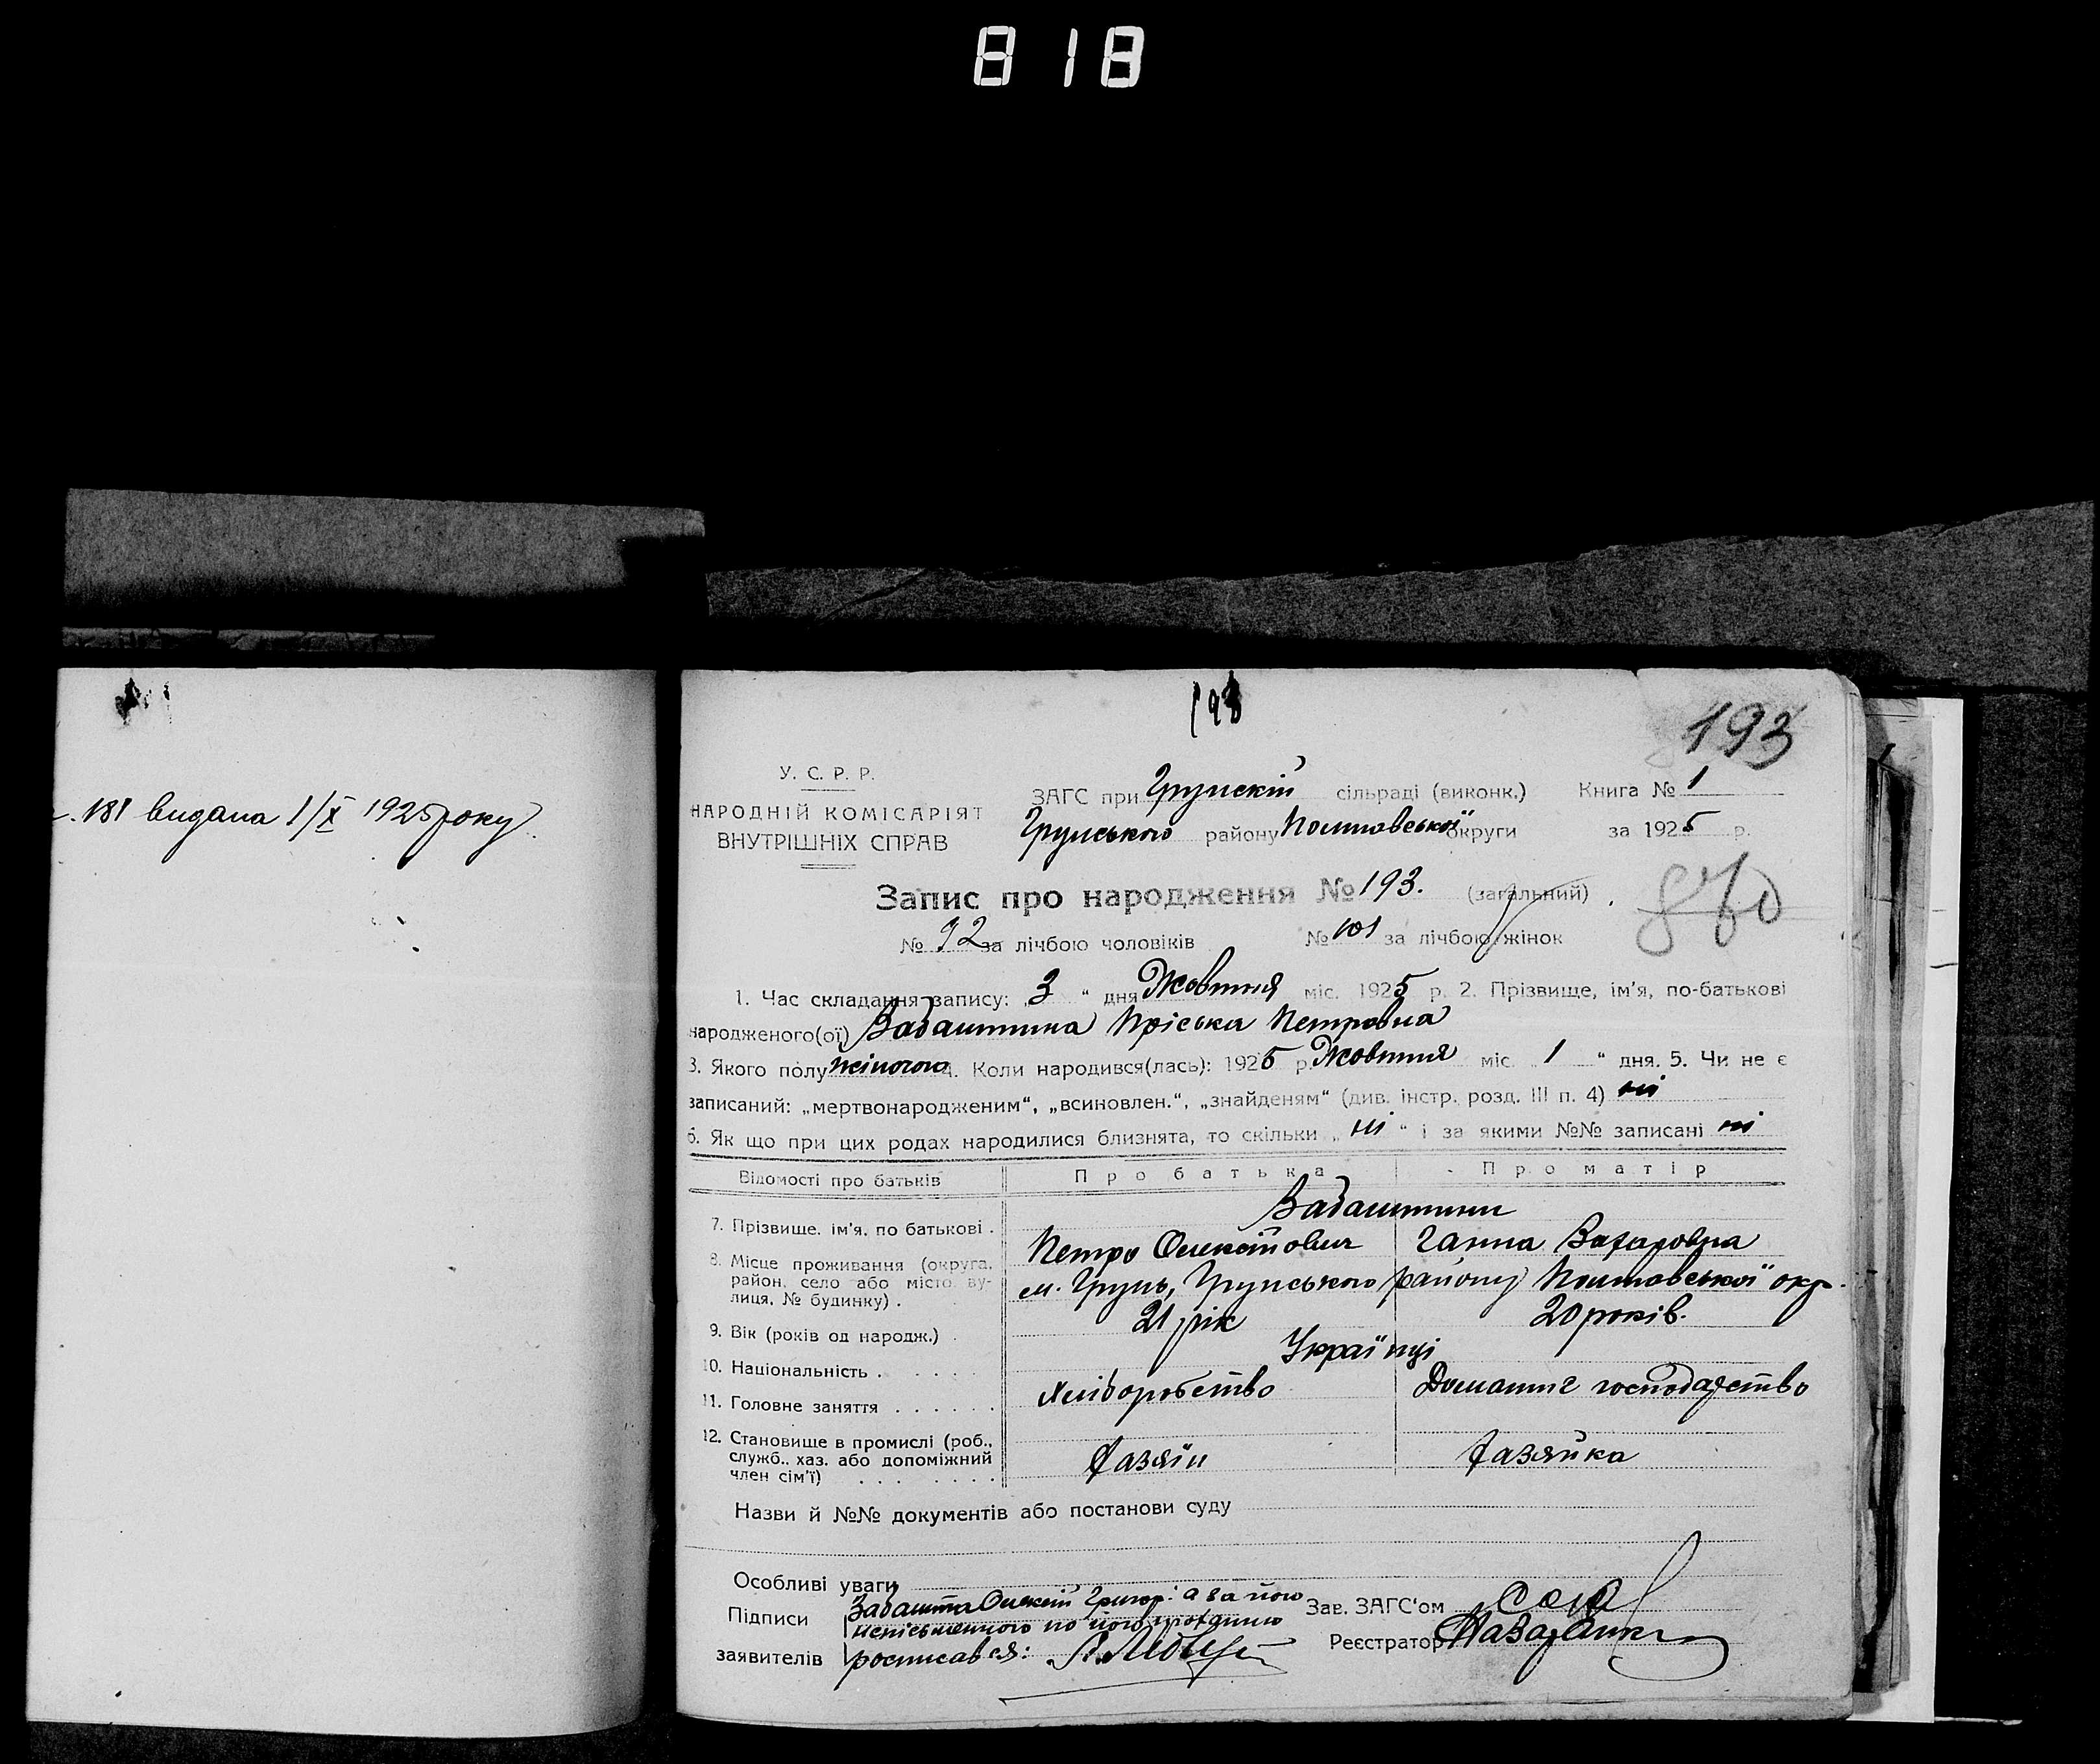 818
181 видана 1/X 1925 року
193
193
У. С. Р. Р.
НАРОДНІЙ КОМІСАРІЯТ
ВНУТРІШНІХ СПРАВ
ЗАГС при Грунскій сільраді (виконк.) Книга № 1
Грунського району Полтавської округи за 1925 р.
Запис про народження № 193. (загальний)
№ 92 за лічбою чоловіків № 101 за лічбою жінок
1. Час складання запису: „3“ дня Жовтня міс. 1925 р. 2. Прізвище, ім'я, по-батькові
народженого(ої) Забаштина Пріська Петровна
3. Якого полу жіночого 4. Коли народився(лась): 1925 р. Жовтня міс. „1“ дня. 5. Чи не є
записаний: „мертвонародженим“, „всиновлен.“, „знайденям“ (див. інстр. розд. III п. 4) ні
6. Як що при цих родах народилися близнята, то скільки „ні“ і за якими №№ записані ні
Відомості про батьків Про батька Про матір
Забаштини
7. Прізвище. ім'я. по батькові . Петро Олексійович Ганна Захаровна
8. Місце проживання (округа, район, село або місто, вулиця, № будинку) . м. Грунь, Грунського району Полтавської окр.
9. Вік (років од народж.) . 21 рік 20 років.
10. Національність . . . . . Українці
11. Головне заняття . . . . . . Хліборобство Домашнє господарство
12. Становище в промислі (роб.,
служб.. хаз. або допоміжний
член сім'ї) . . . . . . . . Хазяїн Хазяйка
Назви й №№ документів або постанови суду
Особливі уваги
Підписи Забашта Олексій Григор. а за його Зав. ЗАГС'ом
неписьменного по його проханню
заявителів росписався: Реєстратор